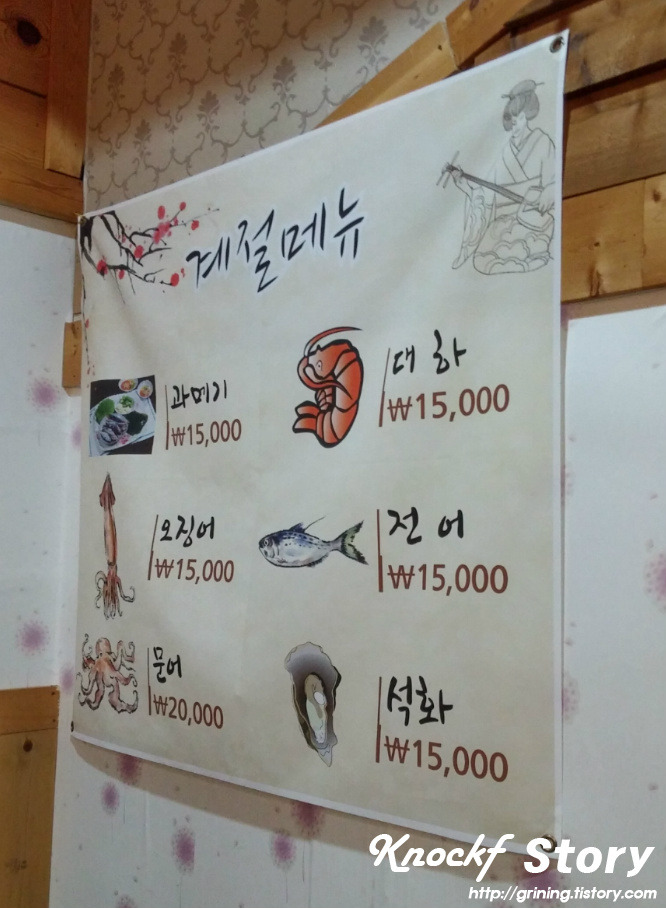 계절메뉴
과메기
₩15,000
대하
₩15,000
오징어
₩15,000
전어
₩15,000
문어
₩20,000
석화
₩15,000
Knockf Story
http://grining.tistory.com